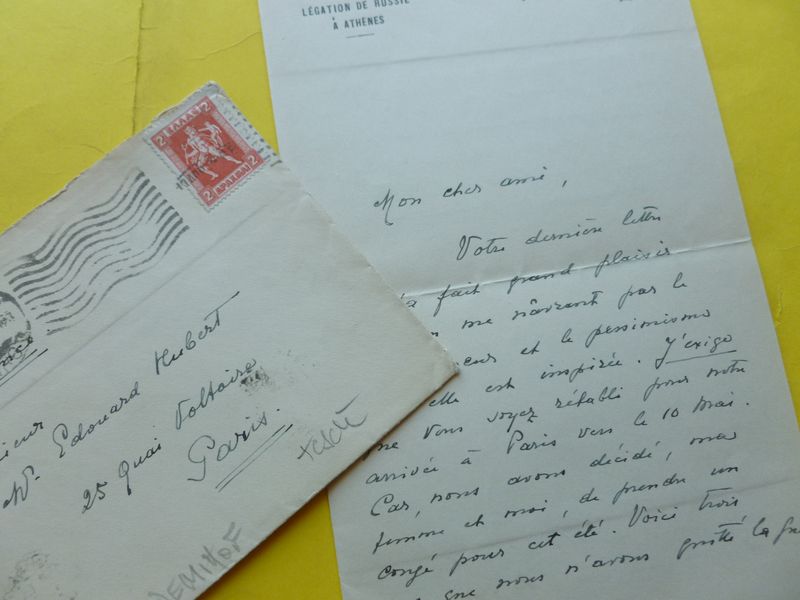 LÉGATION DE RUSSIE
À ATHENES
Mon cher ami,
Votre dernière lettre
fait grand plaisir
me návrant par le
et le pessimisme
elle est inspirée. J'exige
que vous soyez rétabli pour notre
arrivée à Paris vers le 10 Mai.
Car, nous avons décidé, ma
femme et moi, de prendre un
congé pour cet été. Voici trois
que nous n'avons quitté la
2 ΕΛΛΑΣ 2
2 ΛΕΠΤΑ 2
W. Edouard Hubert
25 Quai Voltaire
Paris.
DEMIDOF